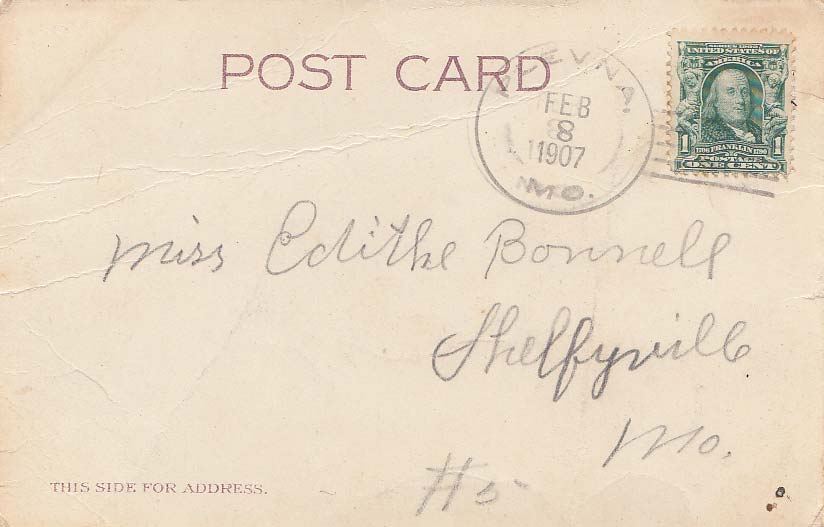 POST CARD
PLEVNA.
FEB
8
1907
MO.
SERIES 1902
UNITED STATES OF
AMERICA
1 1706 FRANKLIN 1790 1
POSTAGE
ONE CENT
Miss Edithe Bonnell
Shelfyville
Mo.
#5
THIS SIDE FOR ADDRESS.